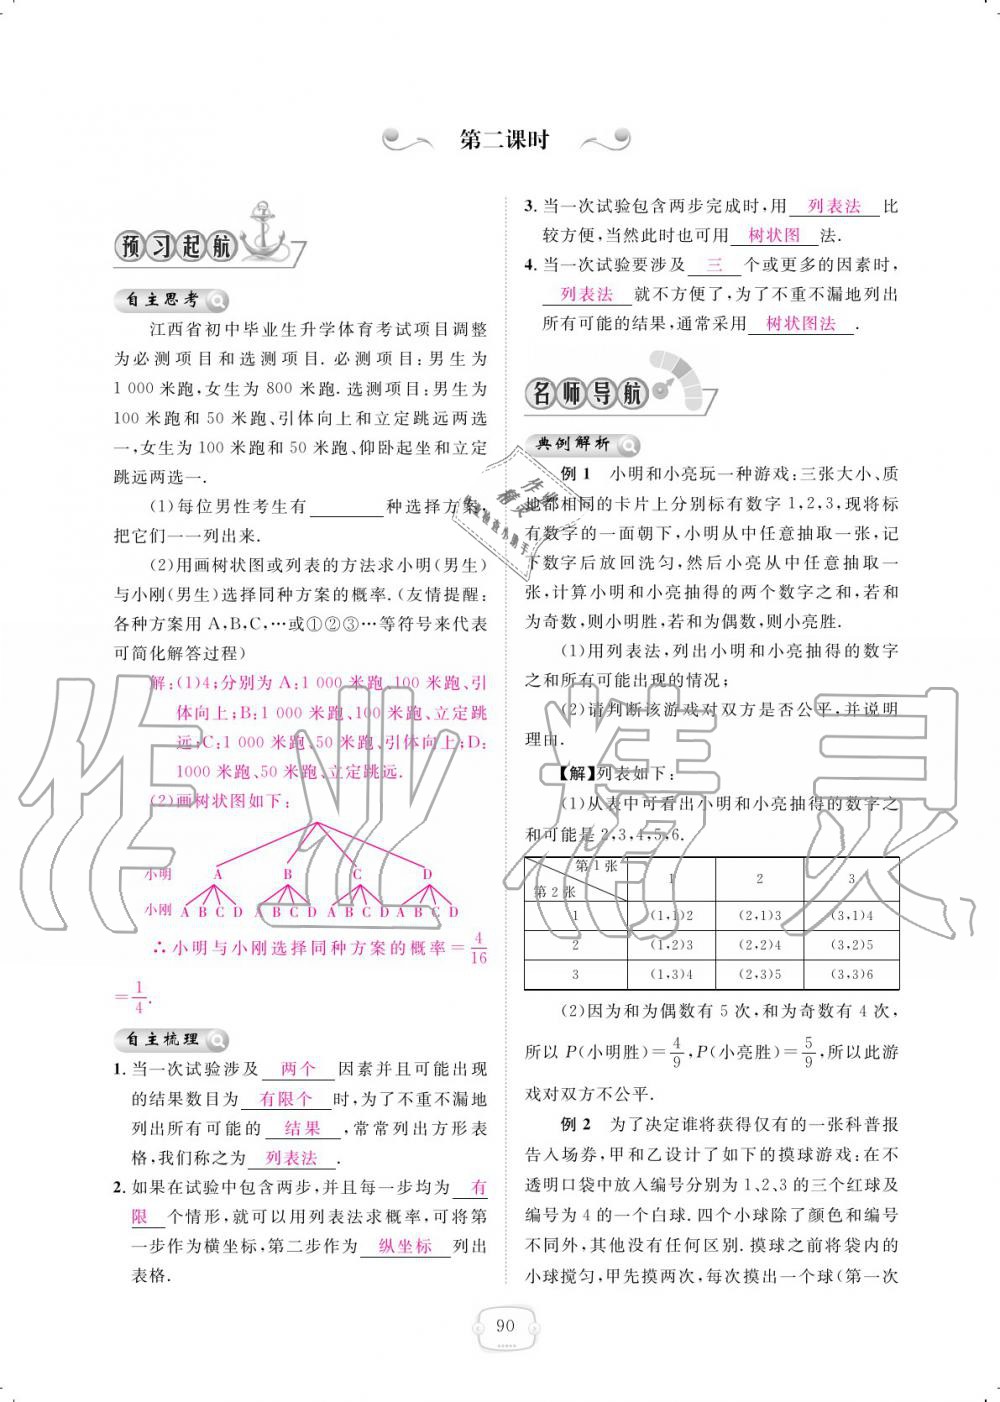 第二课时
预习起航
自主思考
江西省初中毕业生升学体育考试项目调整
为必测项目和选测项目. 必测项目:男生为
1 000 米跑,女生为 800 米跑. 选测项目:男生为
100 米跑和 50 米跑、引体向上和立定跳远两选
一,女生为 100 米跑和 50 米跑、仰卧起坐和立定
跳远两选一.
(1)每位男性考生有________种选择方案,
把它们一一列出来.
(2)用画树状图或列表的方法求小明(男生)
与小刚(男生)选择同种方案的概率.(友情提醒:
各种方案用 A,B,C,…或①②③…等符号来代表
可简化解答过程)
解:(1)4;分别为 A:1 000 米跑、100 米跑、引
体向上;B:1 000 米跑、100 米跑、立定跳
远;C:1 000 米跑、50 米跑、引体向上;D:
1000 米跑、50 米跑、立定跳远.
(2)画树状图如下:
小明 A B C D
小刚 A B C D A B C D A B C D A B C D
∴小明与小刚选择同种方案的概率=4/16
=1/4.
自主梳理
1. 当一次试验涉及 两个 因素并且可能出现
的结果数目为 有限个 时,为了不重不漏地
列出所有可能的 结果 ,常常列出方形表
格,我们称之为 列表法 .
2. 如果在试验中包含两步,并且每一步均为 有
限 个情形,就可以用列表法求概率,可将第
一步作为横坐标,第二步作为 纵坐标 列出
表格.
3. 当一次试验包含两步完成时,用 列表法 比
较方便,当然此时也可用 树状图 法.
4. 当一次试验要涉及 三 个或更多的因素时,
列表法 就不方便了,为了不重不漏地列出
所有可能的结果,通常采用 树状图法 .
名师导航
典例解析
例 1 小明和小亮玩一种游戏:三张大小、质
地都相同的卡片上分别标有数字 1,2,3,现将标
有数字的一面朝下,小明从中任意抽取一张,记
下数字后放回洗匀,然后小亮从中任意抽取一
张,计算小明和小亮抽得的两个数字之和,若和
为奇数,则小明胜,若和为偶数,则小亮胜.
(1)用列表法,列出小明和小亮抽得的数字
之和所有可能出现的情况;
(2)请判断该游戏对双方是否公平,并说明
理由.
【解】列表如下:
(1)从表中可看出小明和小亮抽得的数字之
和可能是 2,3,4,5,6.
第 1 张 第 2 张 1 2 3
1 (1,1)2 (2,1)3 (3,1)4
2 (1,2)3 (2,2)4 (3,2)5
3 (1,3)4 (2,3)5 (3,3)6
(2)因为和为偶数有 5 次,和为奇数有 4 次,
所以 P(小明胜)=4/9,P(小亮胜)=5/9,所以此游
戏对双方不公平.
例 2 为了决定谁将获得仅有的一张科普报
告入场券,甲和乙设计了如下的摸球游戏:在不
透明口袋中放入编号分别为 1、2、3 的三个红球及
编号为 4 的一个白球. 四个小球除了颜色和编号
不同外,其他没有任何区别. 摸球之前将袋内的
小球搅匀,甲先摸两次,每次摸出一个球(第一次
90
作业精灵